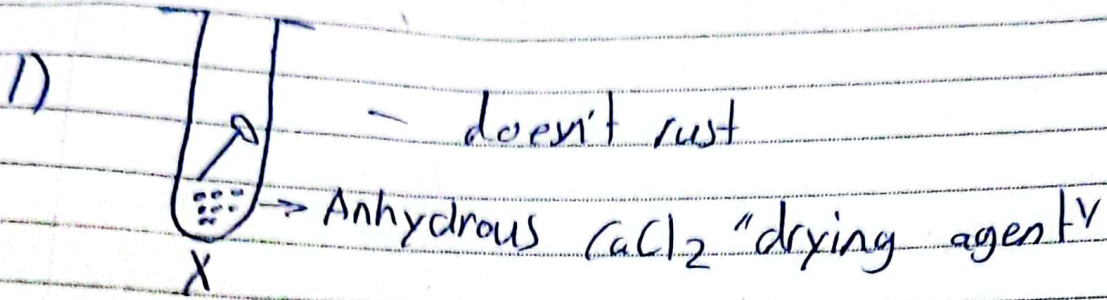 1)
- doesn't rust
→ Anhydrous CaCl2 "drying agent"
X